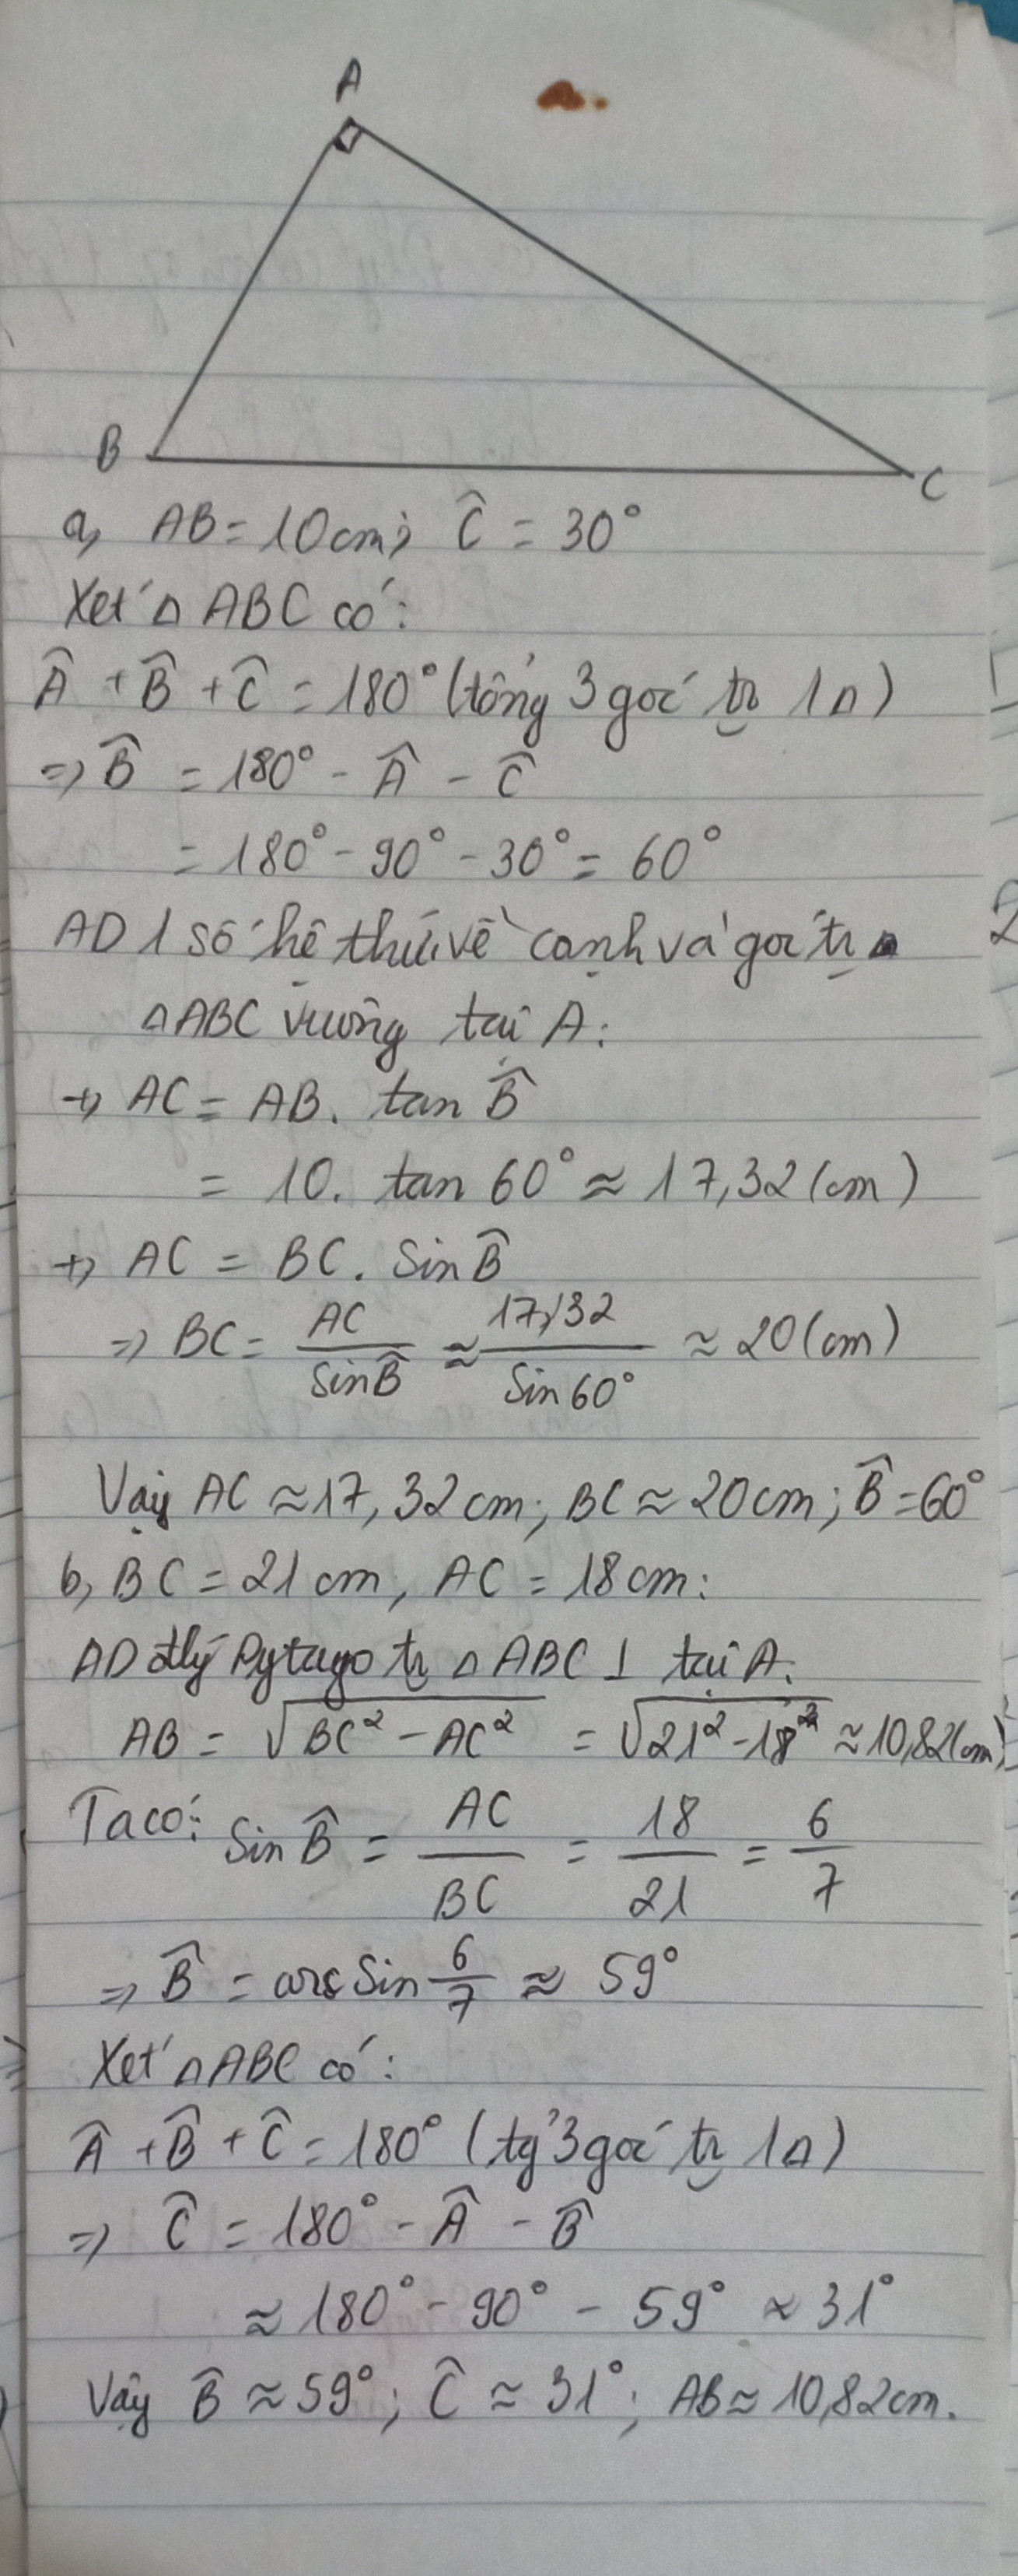 A
B
C
a, AB = 10cm; Ĉ = 30°
Xét △ ABC có:
Â + B̂ + Ĉ = 180° (tổng 3 góc tr 1△)
=> B̂ = 180° - Â - Ĉ
= 180° - 90° - 30° = 60°
AD 1 số hệ thức về cạnh và góc tr
△ABC vuông tại A:
+, AC = AB. tan B̂
= 10. tan 60° ≈ 17,32 (cm)
+, AC = BC. Sin B̂
=> BC = AC/Sin B̂ ≈ 17,32/Sin 60° ≈ 20 (cm)
Vậy AC ≈ 17,32cm; BC ≈ 20cm; B̂ = 60°
b, BC = 21cm, AC = 18cm:
AD đlý Pytago tr △ABC ⊥ tại A:
AB = √(BC² - AC²) = √(21² - 18²) ≈ 10,82(cm)
Ta có: Sin B̂ = AC/BC = 18/21 = 6/7
=> B̂ = arc Sin 6/7 ≈ 59°
Xét △ABC có:
Â + B̂ + Ĉ = 180° (tg 3 góc tr 1△)
=> Ĉ = 180° - Â - B̂
≈ 180° - 90° - 59° ≈ 31°
Vậy B̂ ≈ 59°; Ĉ ≈ 31°; AB ≈ 10,82cm.